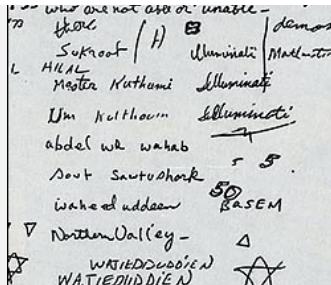 who are not able or unable -
demos
Sukroof / H Illuminati
HILAL
Master Kuthumi Illuminati
Um Kulthoum Illuminati
abdel wh wahab 5 5
Sout Sawtushark 50
waheeduddeen BASEM
Northern Valley -
WATIEDIDUDDIEN
WATIEDUDDIEN